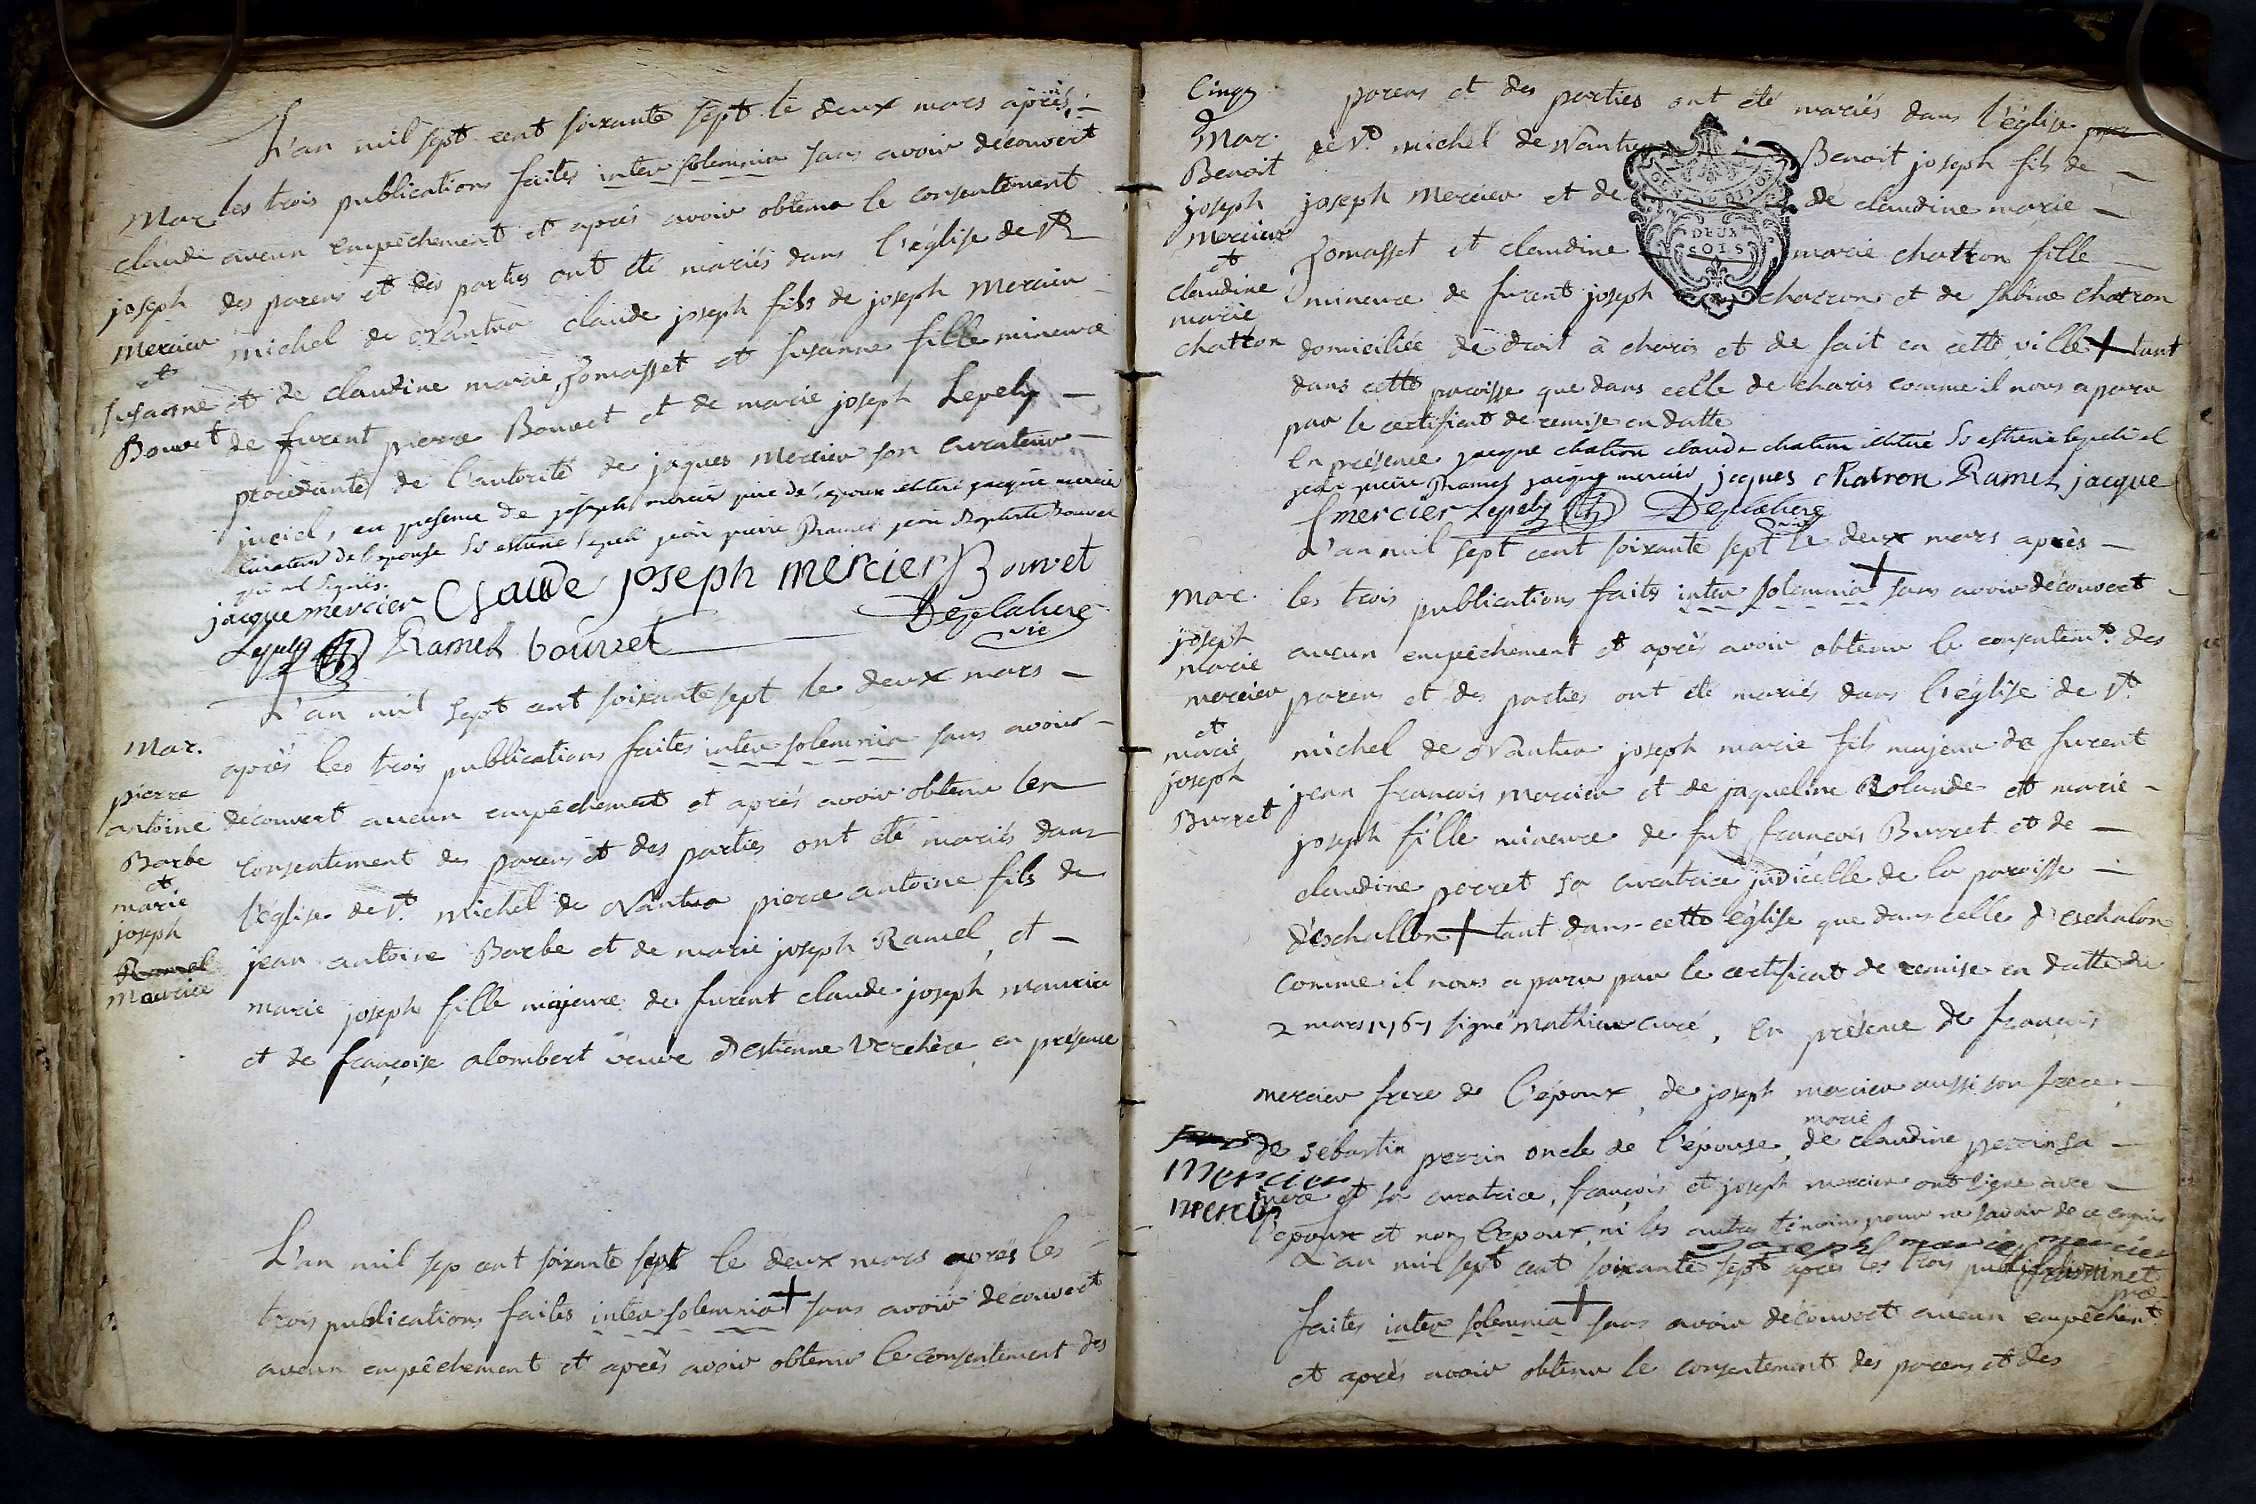 L'an mil sept cent soixante sept le deux mars après
Mar. les trois publications faites inter solemnia sans avoir découvert
claude aucun empêchement et après avoir obtenu le consentement
joseph des parens et des parties ont été mariés dans l'église de St
Mercier michel de Nantua claude joseph fils de joseph Mercier
et
susanne et de claudine marie Jomasset et susanne fille mineure
Bouvet de furent pierre Bouvet et de marie joseph Lepely
procédante de l'autorité de jaques Mercier son curateur
juciel, en presence de joseph mercier pere de l'epoux illiteré jacque mercier
curateur de l'epouse Sr estiene lepeli jean pierre Ramel jean Baptiste Bouvet
qui ont signés.
jacque mercier Claude joseph mercier Bouvet
Lepely Ramel bouvet Desplahere
vic
L'an mil sept cent soixante sept le deux mars
Mar. après les trois publications faites inter solemnia sans avoir
pierre
antoine découvert aucun empêchement et après avoir obtenu les
Barbe consentement des parens et des parties ont été mariés dans
et
marie l'église de St. michel de Nantua pierre antoine fils de
joseph jean antoine Barbe et de marie joseph Ramel, et
Ramel
Maurice marie joseph fille majeure de furent claude joseph Maurice
et de françoise alombert veuve d'estienne Verchère en presence
L'an mil sep cent soixante sept le deux mars après les
trois publications faites inter solemnia + sans avoir découvert
aucun empêchement et après avoir obtenu le consentement des
Cinq
parens et des parties ont été mariés dans l'église
Mar. de St. michel de Nantua Benoit joseph fils de
Benoit
joseph joseph Mercier et de de claudine marie
Mercier
et Jomasset et claudine marie chatron fille
claudine mineure de furent joseph chatron et de sabine chatron
marie
chatton domiciliée de droit à charis et de fait en cette ville + tant
GEN DE DIJON
DEUX
SOLS
dans cette paroisse que dans celle de charis comme il nous a paru
par le certificat de remise en datte
En présence jacque chatron claude chatron illiteré Sr estiene lepeli et
jean pierre Ramel jacque mercier jacques chatron Ramel jacque
mercier Lepely Desplahere
vic
L'an mil sept cent soixante sept le deux mars après
Mar. les trois publications faites inter solemnia + sans avoir découvert
joseph
marie aucun empêchement et après avoir obtenu le consentemt. des
mercier parens et des parties ont été mariés dans l'église de St.
et
marie michel de Nantua joseph marie fils majeur de furent
joseph jean francois Mercier et de jaqueline Rolande et marie
Burret
joseph fille mineure de fut francois Burret et de
claudine perret sa curatrice judicelle de la paroisse
d'eschallon + tant dans cette église que dans celle d'eschalon
comme il nous a paru par le certificat de remise en datte du
2 mars 1767 signé Mathieu curé, En présence de françois
mercier frere de l'époux, de joseph mercier aussi son frere,
de sébastin perrin oncle de l'épouse, de claudine marie perrin sa
Mercier
mere et sa curatrice, françois et joseph mercier ont signé avec
mercier
l'époux et non l'epoux, ni les autres témoins pour ne savoir de ce enquis
joseph marie mercier
L'an mil sept cent soixante sept après les trois publications
faites inter solemnia + sans avoir découvert aucun empêchemt
et après avoir obtenu le consentement des parens et des